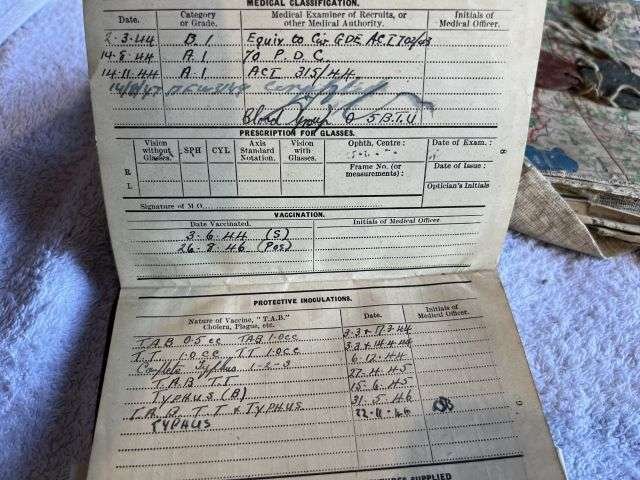 MEDICAL CLASSIFICATION.
Date. Category or Grade. Medical Examiner of Recruits, or other Medical Authority. Initials of Medical Officer.
2-3-44 B.1 Equiv to Civ GDE ACI
14-8-44 A.1 70 P.D.C.
14-11-44 A.1 ACI 315/44.
Blood Group O 5 B.T.U
PRESCRIPTION FOR GLASSES.
Vision without Glasses. SPH CYL Axis Standard Notation. Vision with Glasses. Ophth. Centre: Date of Exam.:
R Frame No. (or measurements): Date of Issue:
L Optician's Initials
Signature of M.O.
8
VACCINATION.
Date Vaccinated. Initials of Medical Officer
3-6-44 (S)
26-8-46 (Pos)
PROTECTIVE INOCULATIONS.
Nature of Vaccine, "T.A.B." Cholera, Plague, etc. Date. Initials of Medical Officer.
T.A.B 0.5 cc TAB 1.0cc 3-3 & 17-3-44
T.T 1.0.cc TT 1.0cc 3-3 & 14-4-44
Complete Typhus 1-2-3 6-12-44
T.A.B T.T 27-14-45
TYPHUS (B) 15-6-45
T.A.B T T & TYPHUS 31-5-46
TYPHUS 22-11-46
9
SUPPLIED